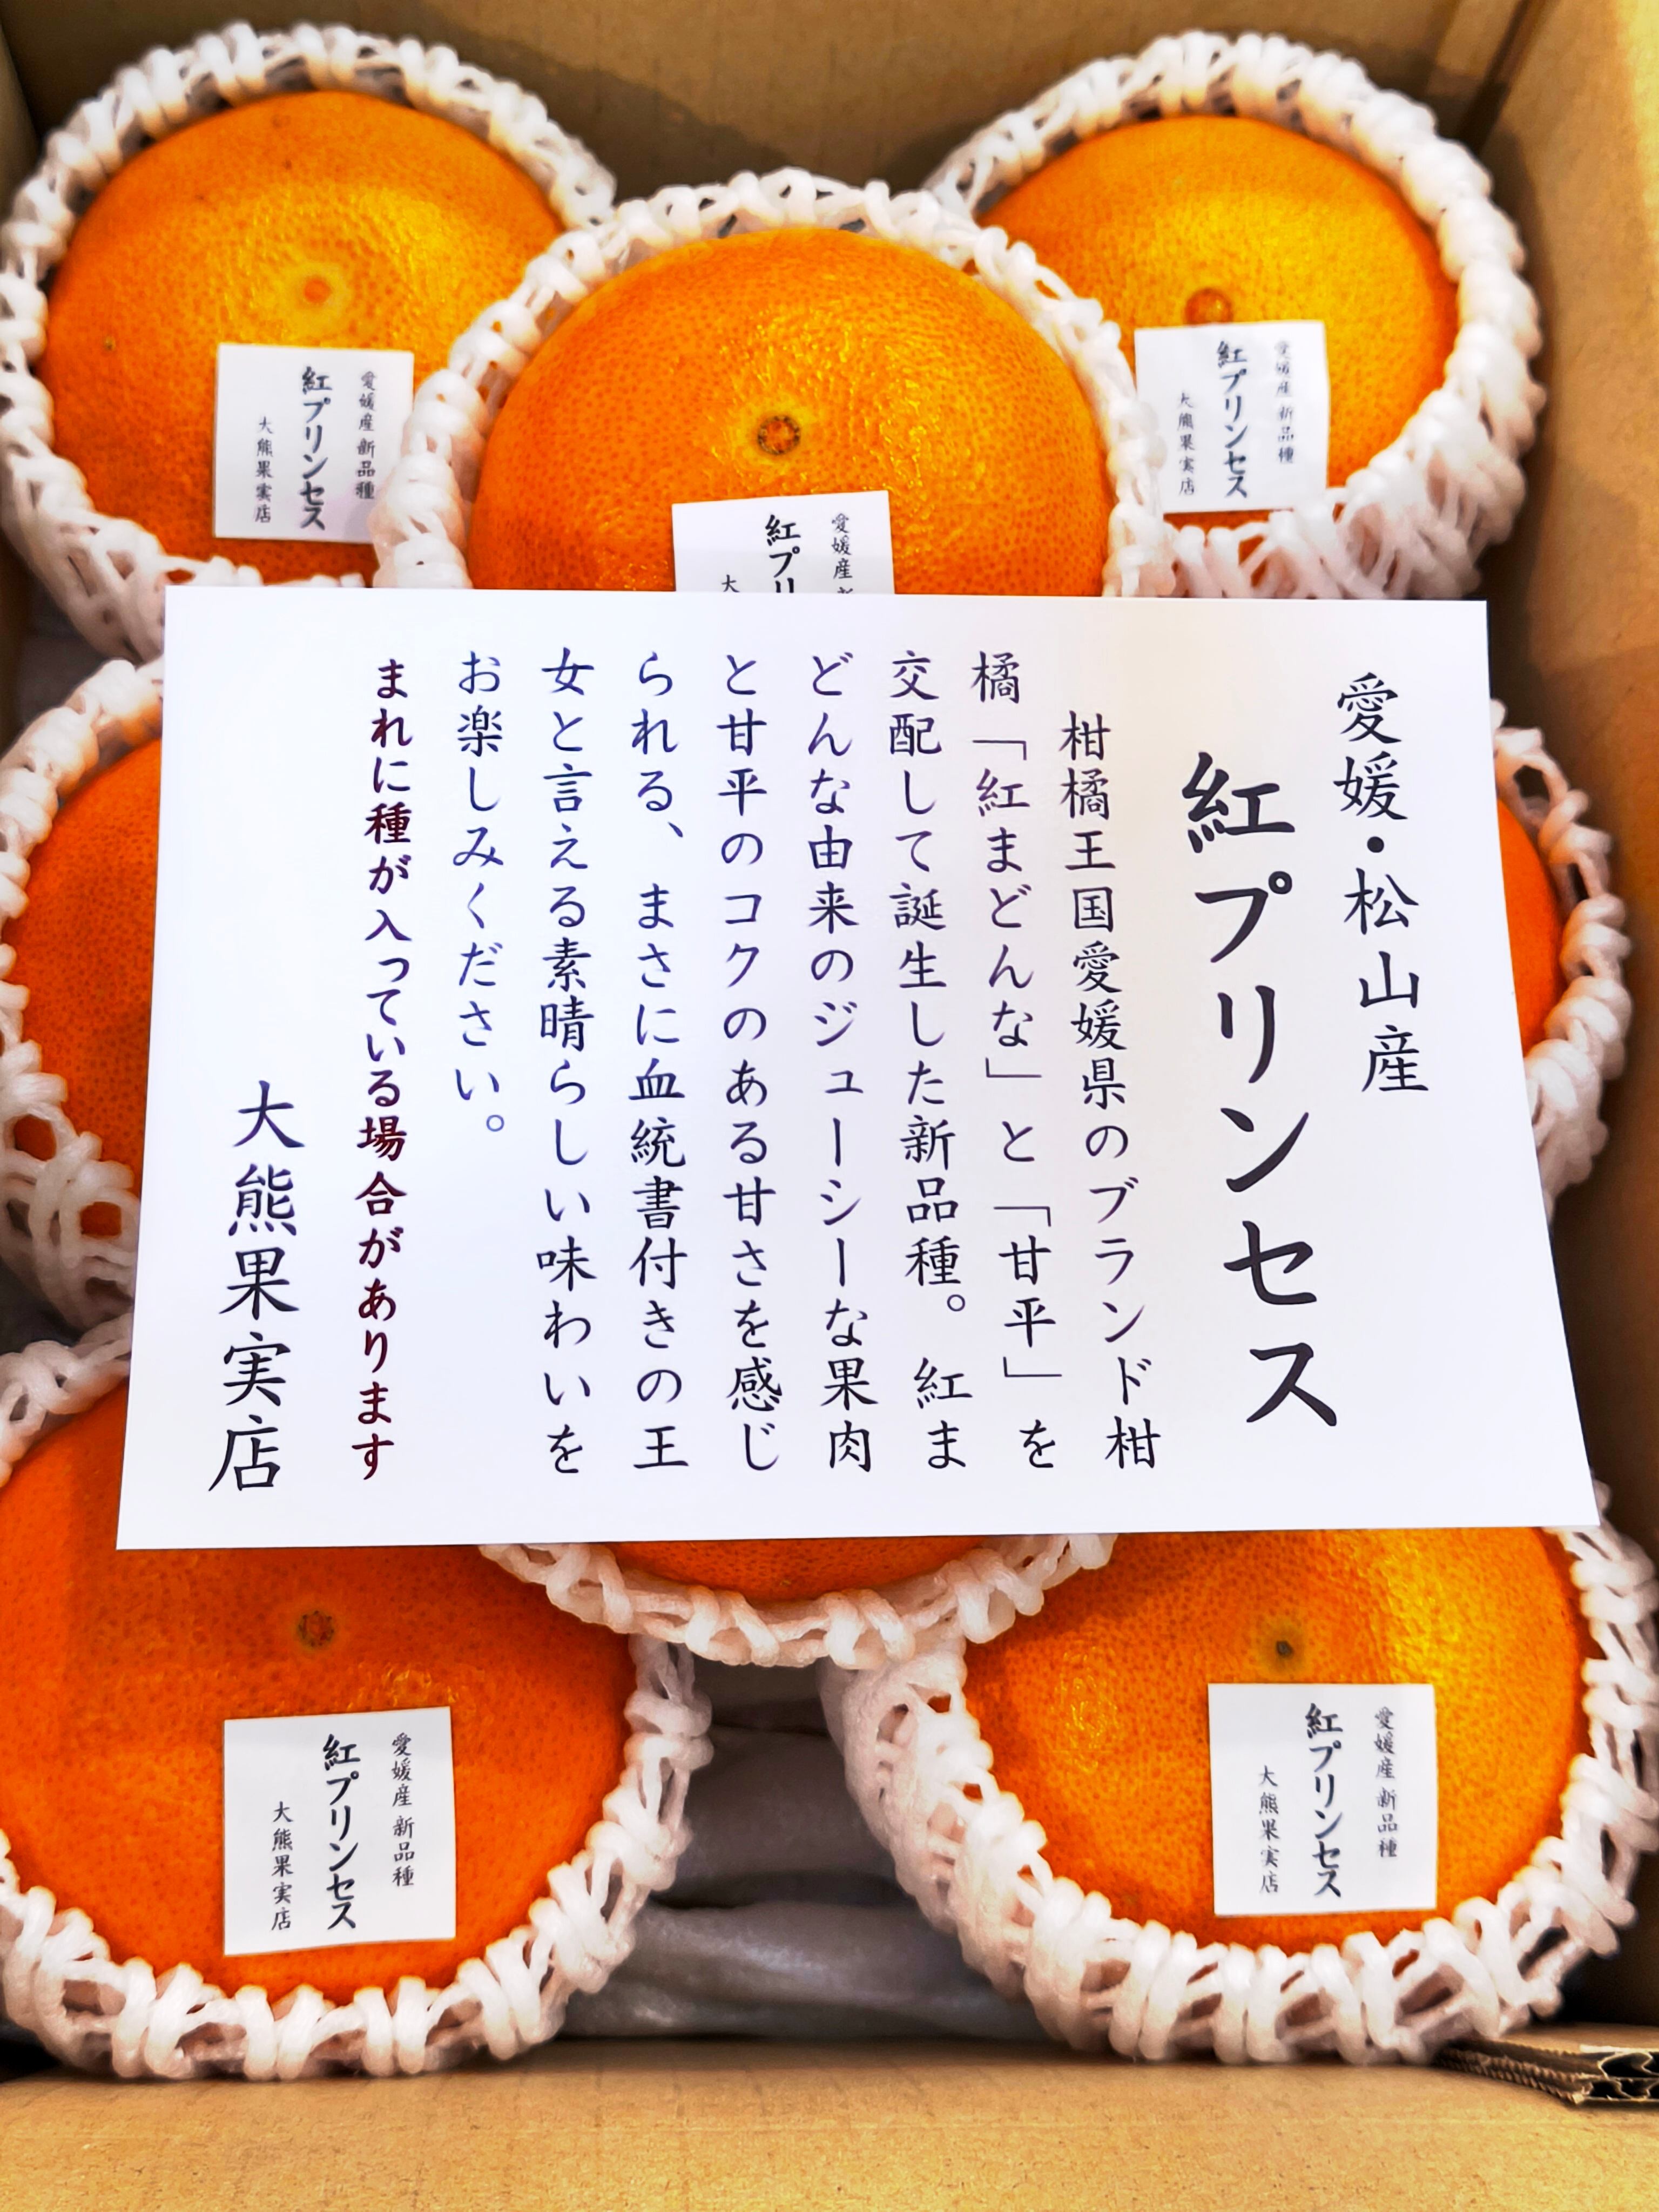 愛媛産 新品種
紅プリンセス
大熊果実店
愛媛産
紅プリ
大
愛媛産 新品種
紅プリンセス
大熊果実店
愛媛・松山産
紅プリンセス
柑橘王国愛媛県のブランド柑
橘「紅まどんな」と「甘平」を
交配して誕生した新品種。紅ま
どんな由来のジューシーな果肉
と甘平のコクのある甘さを感じ
られる、まさに血統書付きの王
女と言える素晴らしい味わいを
お楽しみください。
まれに種が入っている場合があります
大熊果実店
愛媛産 新品種
紅プリンセス
大熊果実店
愛媛産 新品種
紅プリンセス
大熊果実店